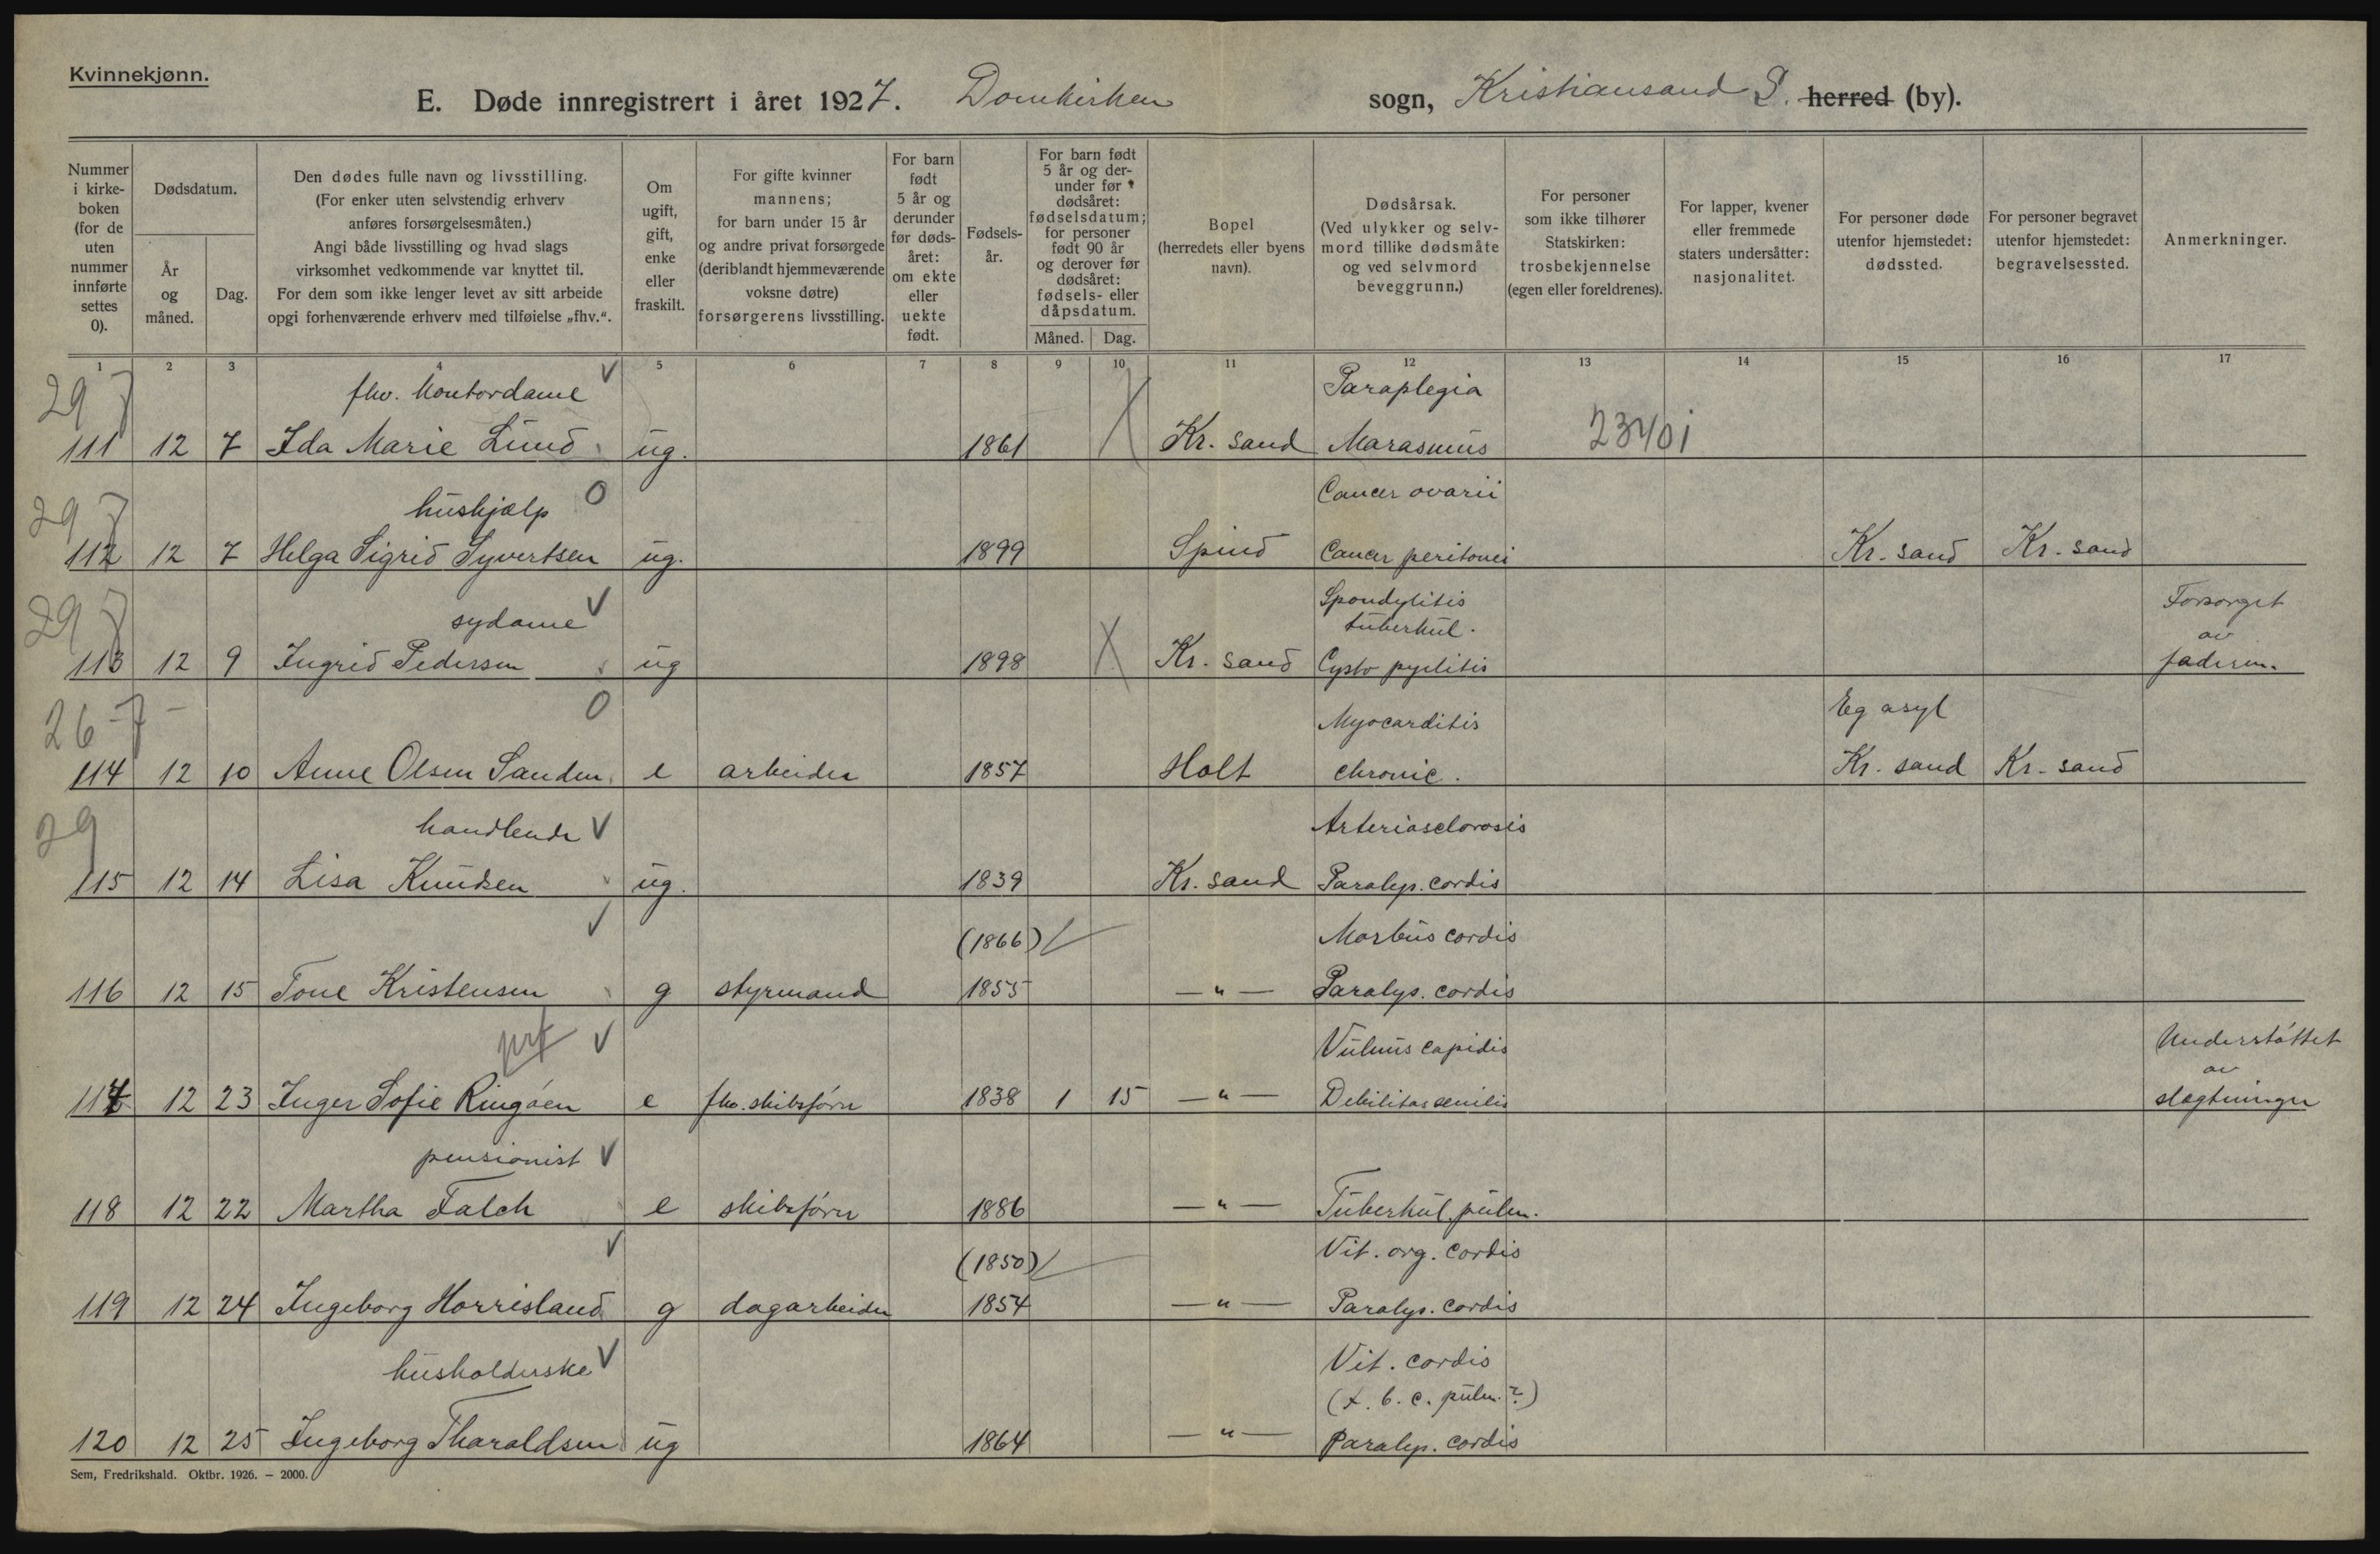 Kvinnekjønn.
E. Døde innregistrert i året 1927. Domkirken sogn, Kristiansand S. herred (by).
Nummer i kirke-boken (for de uten nummer innførte settes 0).
Dødsdatum.
År og måned.
Dag.
Den dødes fulle navn og livsstilling.
(For enker uten selvstendig erhverv
anføres forsørgelsesmåten.)
Angi både livsstilling og hvad slags
virksomhet vedkommende var knyttet til.
For dem som ikke lenger levet av sitt arbeide
opgi forhenværende erhverv med tilføielse „fhv.“.
Om ugift, gift, enke eller fraskilt.
For gifte kvinner
mannens;
for barn under 15 år
og andre privat forsørgede
(deriblandt hjemmeværende
voksne døtre)
forsørgerens livsstilling.
For barn født 5 år og derunder før døds-året: om ekte eller uekte født.
Fødsels-år.
For barn født 5 år og der-under før dødsåret: fødselsdatum; for personer født 90 år og derover før dødsåret: fødsels- eller dåpsdatum.
Måned. Dag.
Bopel
(herredets eller byens
navn).
Dødsårsak.
(Ved ulykker og selv-
mord tillike dødsmåte
og ved selvmord
beveggrunn.)
For personer
som ikke tilhører
Statskirken:
trosbekjennelse
(egen eller foreldrenes).
For lapper, kvener
eller fremmede
staters undersåtter:
nasjonalitet.
For personer døde
utenfor hjemstedet:
dødssted.
For personer begravet
utenfor hjemstedet:
begravelsessted.
Anmerkninger.
1 2 3 4 5 6 7 8 9 10 11 12 13 14 15 16 17
29 7 fhv. Kontordame V Paraplegia
111 12 7 Ida Marie Lund ug. 1861 X Kr. sand Marasmus 23401
29 7 hushjælp O Cancer ovarii
112 12 7 Helga Sigrid Syvertsen ug. 1899 Spind Cancer peritonei Kr. sand Kr. sand
29 7 sydame V Spondylitis tuberkul. Forsørget av
113 12 9 Ingrid Pedersen ug 1898 X Kr. sand Cysto pyelitis faderen.
26-7- O Myocarditis Eg asyl
114 12 10 Anne Olsen Sanden e arbeider 1857 Holt chronic. Kr. sand Kr. sand
29 handlende V Arteriasclorosis
115 12 14 Lisa Knudsen ug. 1839 Kr. sand Paralys. cordis
V (1866) Morbus cordis
116 12 15 Tone Kristensen g styrmand 1855 —"— Paralys. cordis
V Vulnus capidis Understøttet av
117 12 23 Inger Sofie Ringøen e fhv. skibsfører 1838 1 15 —"— Debilitas senilis slægtninger
pensionist V
118 12 22 Martha Falch e skibsfører 1886 —"— Tuberkul. pulm.
V (1850) Vit. org. cordis
119 12 24 Ingeborg Horrisland g dagarbeider 1854 —"— Paralys. cordis
husholderske V Vit. cordis
(t. b. c. pulm. ?)
120 12 25 Ingeborg Tharaldsen ug 1864 —"— Paralys. cordis
Sem, Fredrikshald. Oktbr. 1926. – 2000.